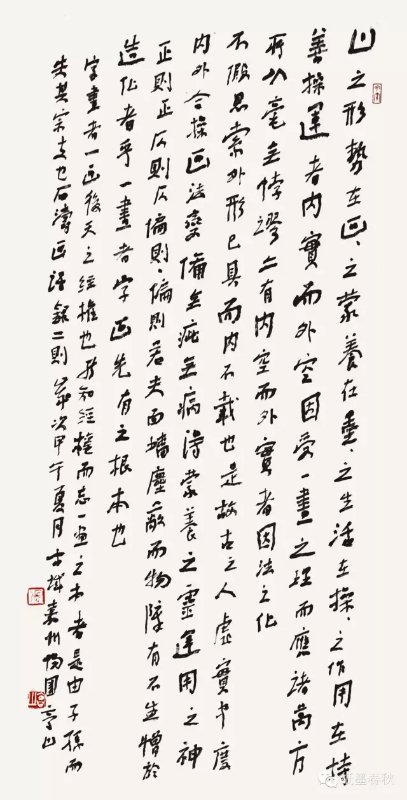 山之形勢在画、之蒙養在墨、之生活在操、之作用在持
善操運者内實而外空因受一畫之理而應諸萬方
所以毫無悖謬亦有内空而外實者因法之化
不假思索外形已具而内不載也是故古之人虛實中度
内外合操画法變備無疵無病得蒙養之靈運用之神
正則正仄則仄偏則、偏則若夫面墻塵蔽而物障有不生憎於
造化者乎一畫者字画先有之根本也
字畫者一画後天之經權也能知經權而忘一畫之本者是由子孫而
失其宗支也石濤画語錄二則歲次甲午夏月
墨春秋